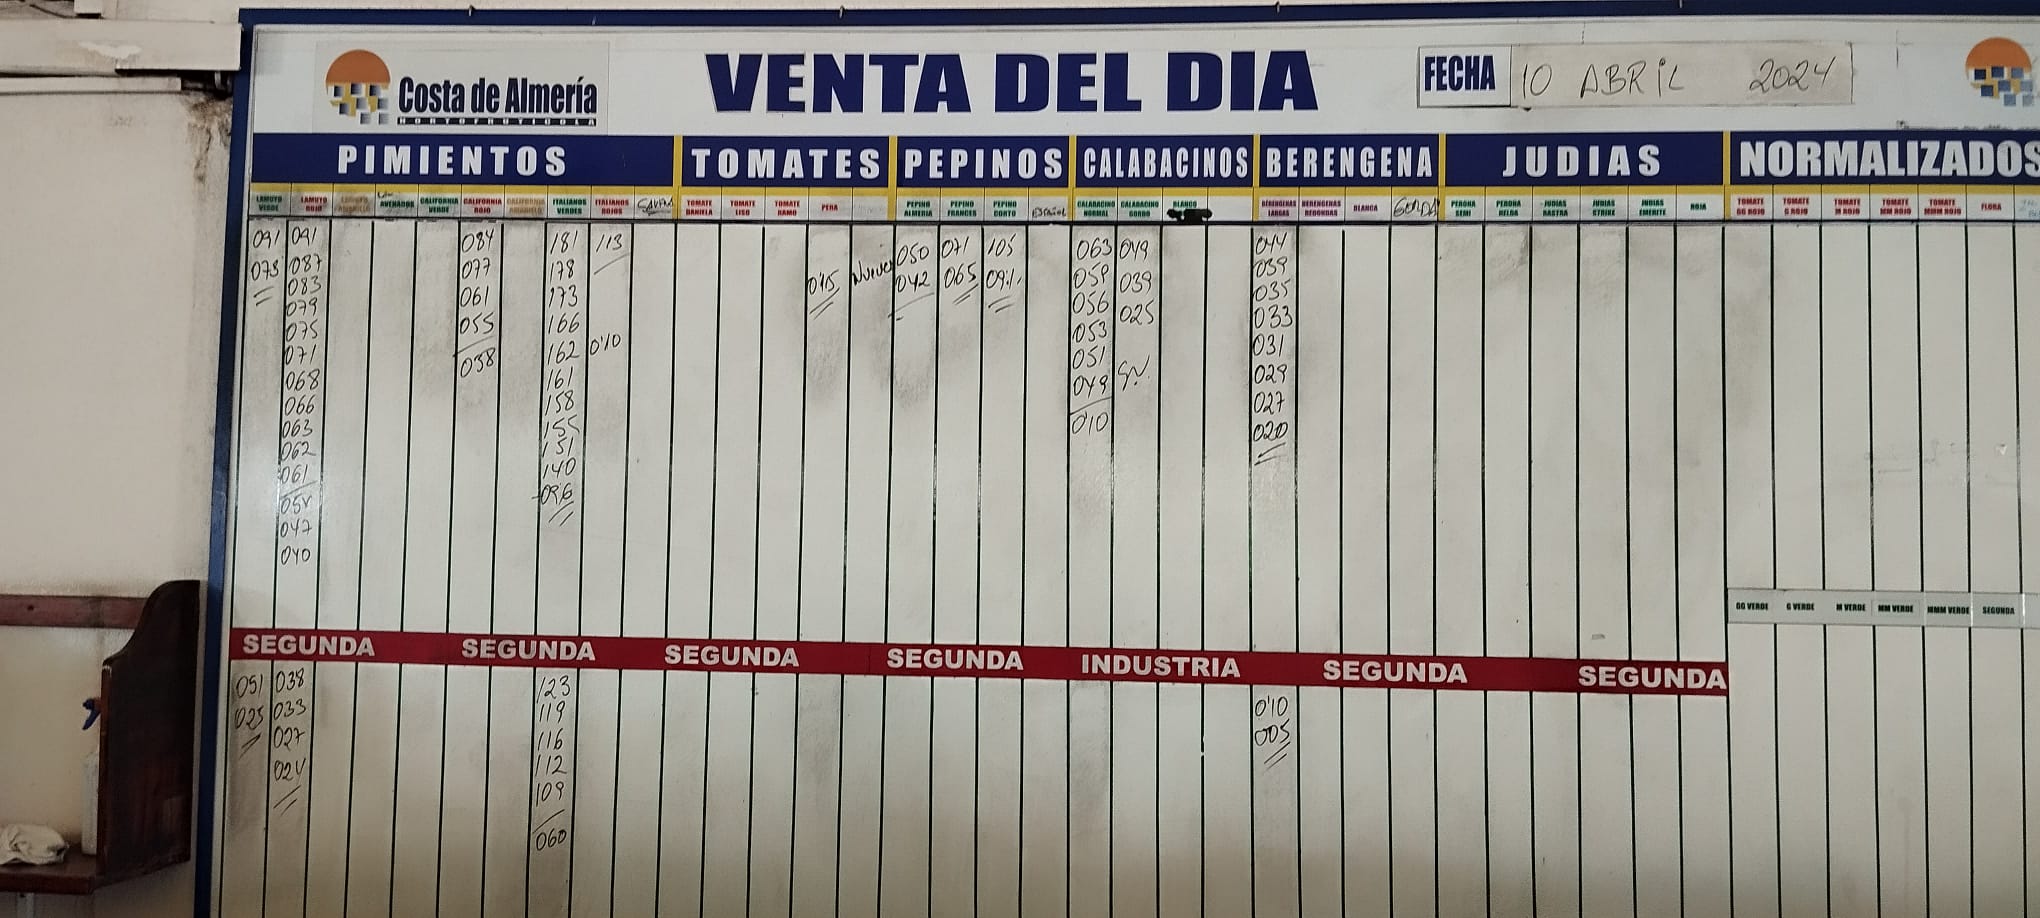 Costa de Almería
HORTOFRUTICOLA
VENTA DEL DIA
FECHA 10 ABRIL 2024
PIMIENTOS TOMATES PEPINOS CALABACINOS BERENGENA JUDIAS NORMALIZADOS
LAMUYO VERDE LAMUYO ROJO LAMUYO AMARILLO CALIFORNIA VERDE CALIFORNIA ROJO CALIFORNIA AMARILLO ITALIANOS VERDES ITALIANOS ROJOS TOMATE DANIELA TOMATE LISO TOMATE RAMO PERA PEPINO ALMERIA PEPINO FRANCES PEPINO CORTO ESPAÑOL CALABACINO NORMAL CALABACINO GORDO BLANCO BERENGENAS LARGAS BERENGENAS REDONDAS BLANCA GORDA PERONA SEMI PERONA HELDA JUDIAS RASTRA JUDIAS STRIKE JUDIAS EMERITE ROJA TOMATE GG ROJO TOMATE G ROJO TOMATE M ROJO TOMATE MM ROJO TOMATE MMM ROJO FLORA
091 091 084 181 113 050 071 105 063 049 044
073 087 077 178 0'15 042 065 059 039 039
083 061 173 056 025 035
079 055 166 053 033
075 038 162 0'10 051 031
071 161 049 029
068 158 0'10 027
066 155 020
063 151
062 140
061 096
047
040
GG VERDE G VERDE M VERDE MM VERDE MMM VERDE SEGUNDA
SEGUNDA SEGUNDA SEGUNDA SEGUNDA INDUSTRIA SEGUNDA SEGUNDA
051 038 123 0'10
025 033 119 005
027 116
024 112
109
060